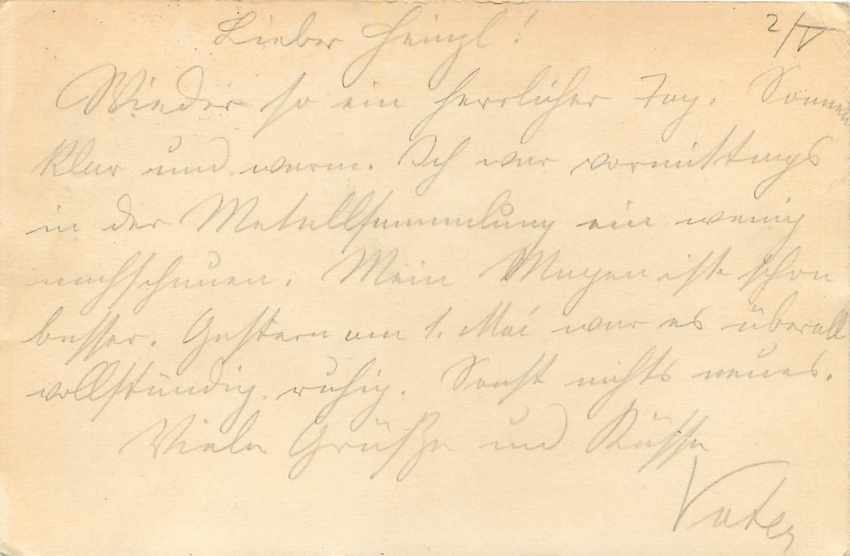 2/V
Lieber Heinzl!
Wieder so ein herrlicher Tag. Sonnen
klar und warm. Ich war vormittags
in der Metallsammlung ein wenig
nachschauen. Mein Magen ist schon
besser. Gestern am 1. Mai war es überall
vollständig ruhig. Sonst nichts neues.
Viele Grüße und Küsse
Vater